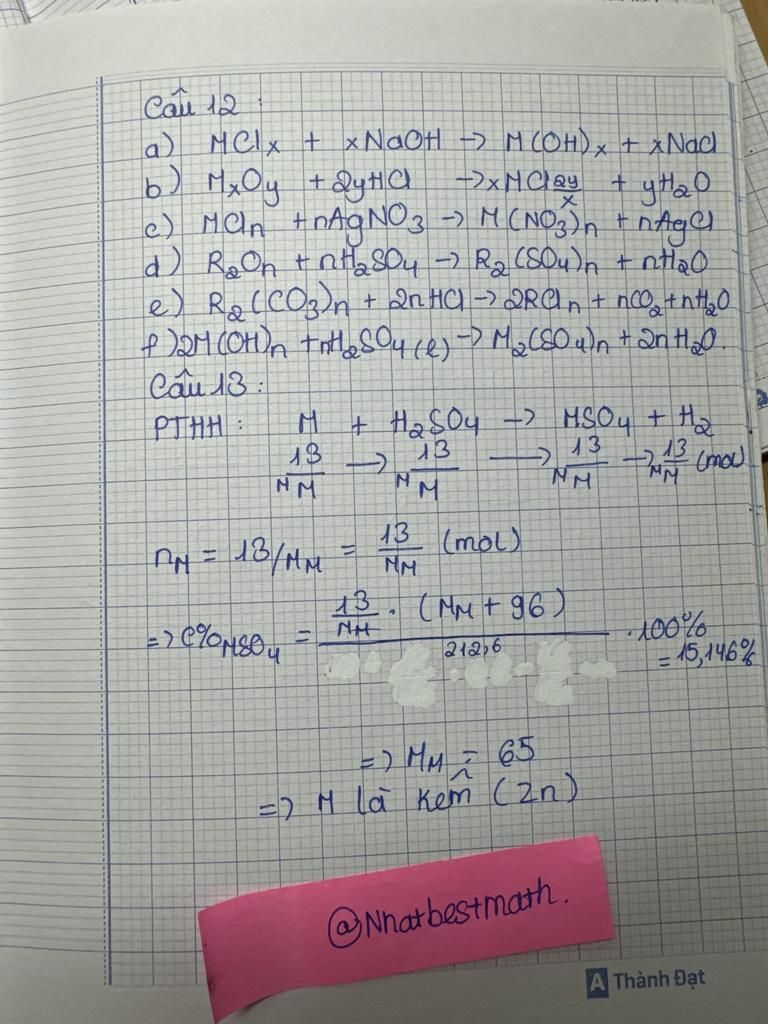 Câu 12 :
a) MClx + xNaOH → M(OH)x + xNaCl
b) MxOy + 2yHCl → xMCl2y/x + yH2O
c) MCln + nAgNO3 → M(NO3)n + nAgCl
d) R2On + nH2SO4 → R2(SO4)n + nH2O
e) R2(CO3)n + 2nHCl → 2RCln + nCO2 + nH2O
f) 2M(OH)n + nH2SO4(l) → M2(SO4)n + 2nH2O.
Câu 13 :
PTHH : M + H2SO4 → MSO4 + H2
13/MM → 13/MM → 13/MM → 13/MM (mol)
nM = 13/MM = 13/MM (mol)
=> C%MSO4 = 13/MM . (MM + 96) / 212,6 . 100% = 15,146%
=> MM = 65
=> M là kẽm (Zn)
@Nhatbestmath.
A Thành Đạt